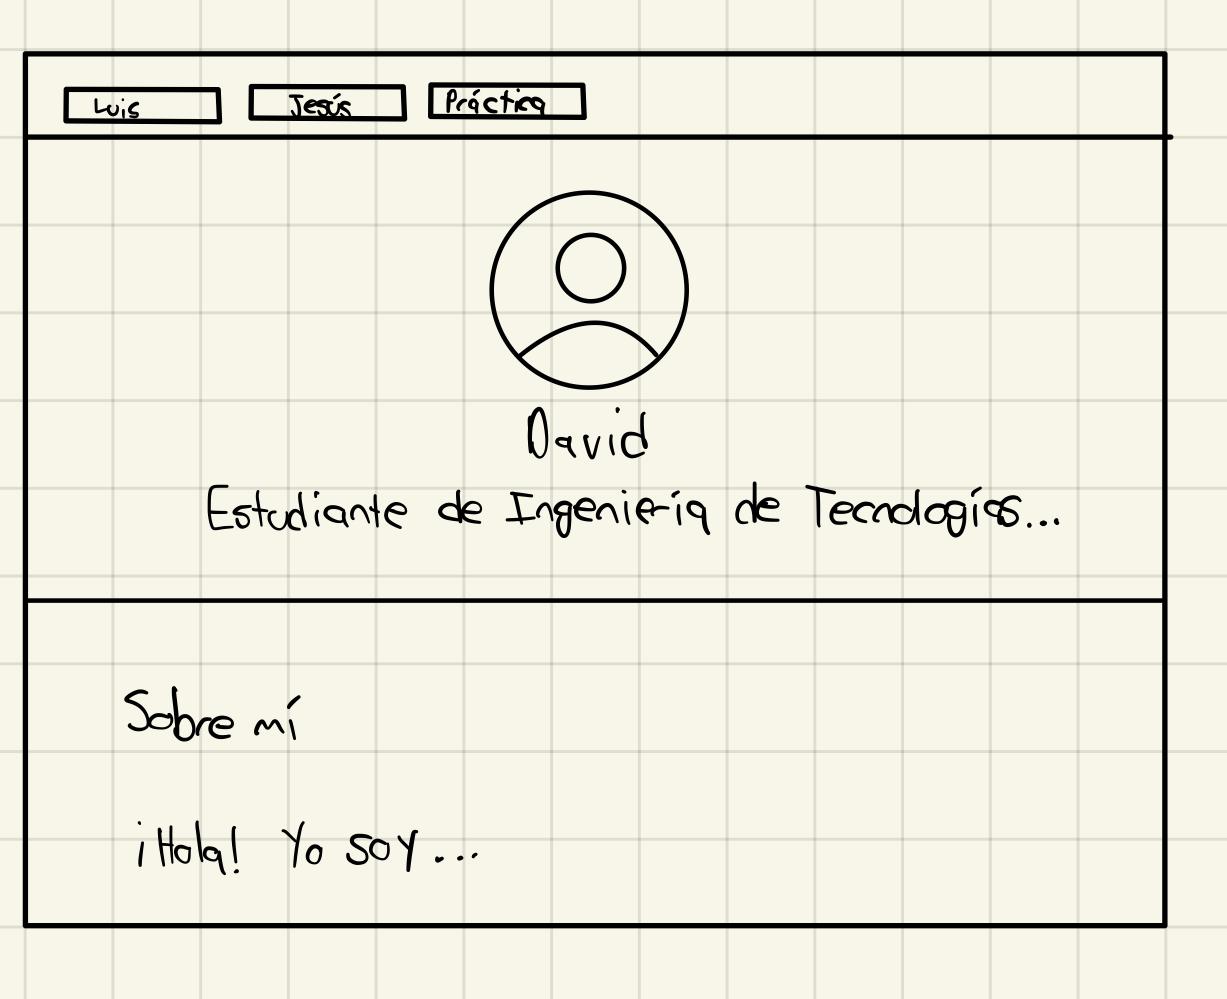 Luis Jesús Práctica
David
Estudiante de Ingeniería de Tecnologías...
Sobre mí
¡Hola! Yo soy...